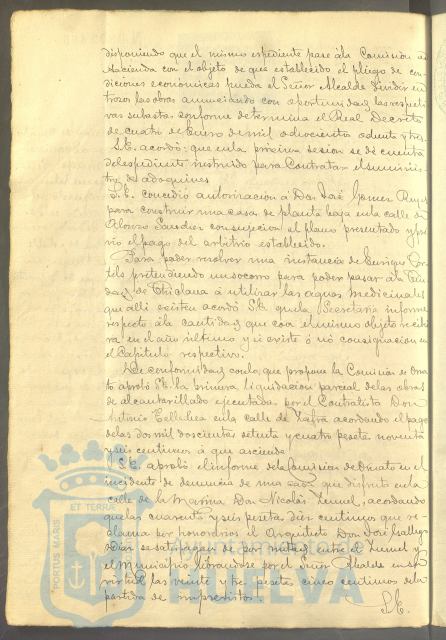 disponiendo que el mismo espediente pase á la Comision de
Hacienda con el objeto de que establecido el pliego de con-
diciones económicas pueda el Señor Alcalde dividir en
trozos las obras anunciando con oportunidad las respecti-
vas subastas conforme determina el Real Decreto
de cuatro de Enero de mil ochocientos ochenta y tres.
S.E. acordó: que en la próxima sesion se dé cuenta
del espediente instruido para Contratar el suminis-
tro de adoquines
S.E. concedió autorizacion á Don José Gomez Reyes
para construir una casa de planta baja en la calle de
Alonso Sanchez con sujecion al plano presentado y pré-
vio el pago del arbitrio establecido.
Para poder resolver una instancia de Enrique Cor-
tels pretendiendo un socorro para poder pasar á la Ciu-
dad de Chiclana á utilizar las aguas medicinales
que alli existen acordó S.E. que la Secretaria informe
respecto á la cantidad que con el mismo objeto recibi-
ra en el año ultimo y si existe ó nó consignacion en
el Capitulo respectivo.
De conformidad con lo que propone la Comision de Orna-
to aprobó S.E. la primera liquidacion parcial de las obras
de alcantarillado ejecutadas por el Contratista Don
Antonio Tellechea en la calle de Zafra acordando el pago
de las dos mil doscientas setenta y cuatro pesetas noventa
y seis centimos á que asciende
S.E. aprobó el informe de la Comision de Ornato en el
incidente de denuncia de una casa que disfruta en la
calle de la Marina Don Nicolás, acordando
que las cuarenta y seis pesetas diez centimos que re-
clama por honorarios el Arquitecto Don José Gallego
Diaz se satisfagan de por mitad entre el
y el Municipio librandose por el Señor Alcalde en su
virtud las veinte y tres pesetas cinco centimos de la
partida de imprevistos.
S.E.
ET TERRÆ
PORTUS MARIS
Ayuntamiento de
HUELVA